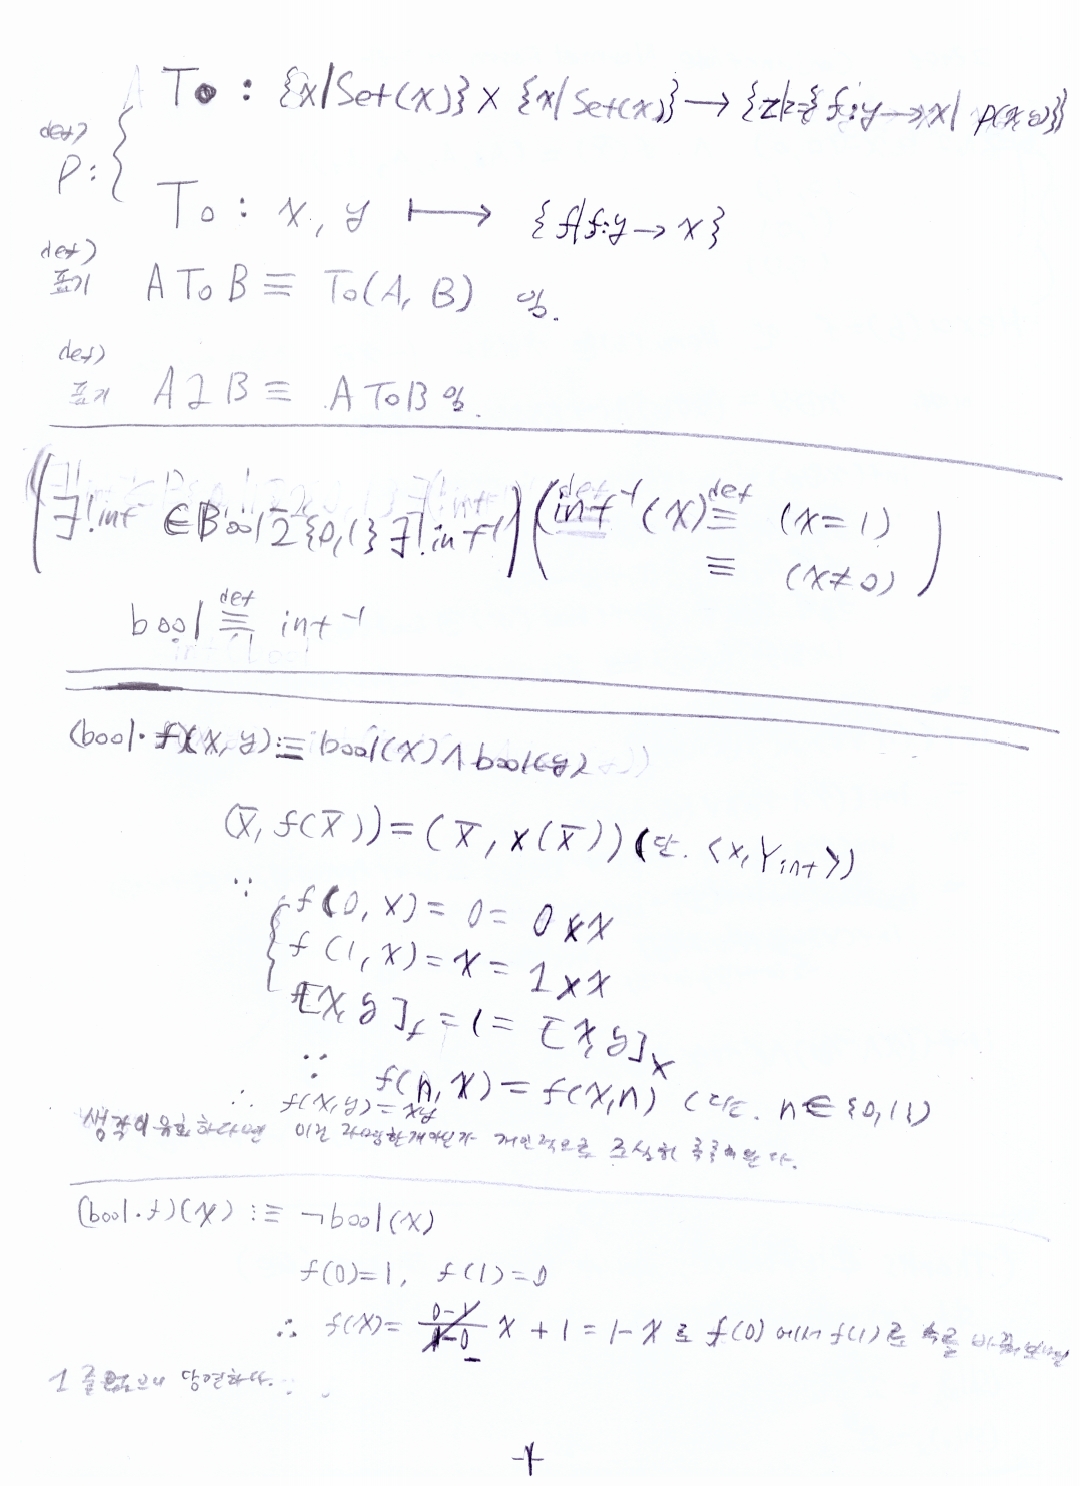 To : {x|Set(x)} × {x|Set(x)} → {z|z={f:y→x| p(x,y)}}
def)
P:
To : x, y ↦ {f|f:y→x}
def)
표기 A To B ≡ To(A, B) 임.
def)
표기 A 2 B ≡ A To B 임.
(∃!int ∈ Bool 2 {0,1} ∃!int⁻¹)(int⁻¹(x) def≡ (x=1)
≡ (x≠0))
bool def≡ int⁻¹
(bool·f)(x, y) :≡ bool(x) ∧ bool(y)
(x̄, f(x̄)) = (x̄, x(x̄)) (단. <x, Y int>)
∵ f(0, x) = 0 = 0 × x
f(1, x) = x = 1 × x
[x, y]f = 1 = [x, y]x
∵ f(n, x) = f(x, n) (단. n ∈ {0,1})
∴ f(x,y) = xy
생각이 유효하다면 이건 자명한게 아닌가 개인적으로 조심히
(bool·f)(x) :≡ ¬bool(x)
f(0)=1, f(1)=0
∴ f(x) = 0-1/1-0 x + 1 = 1-x 로 f(0) 에서 f(1)로
1 줄 당연하다.